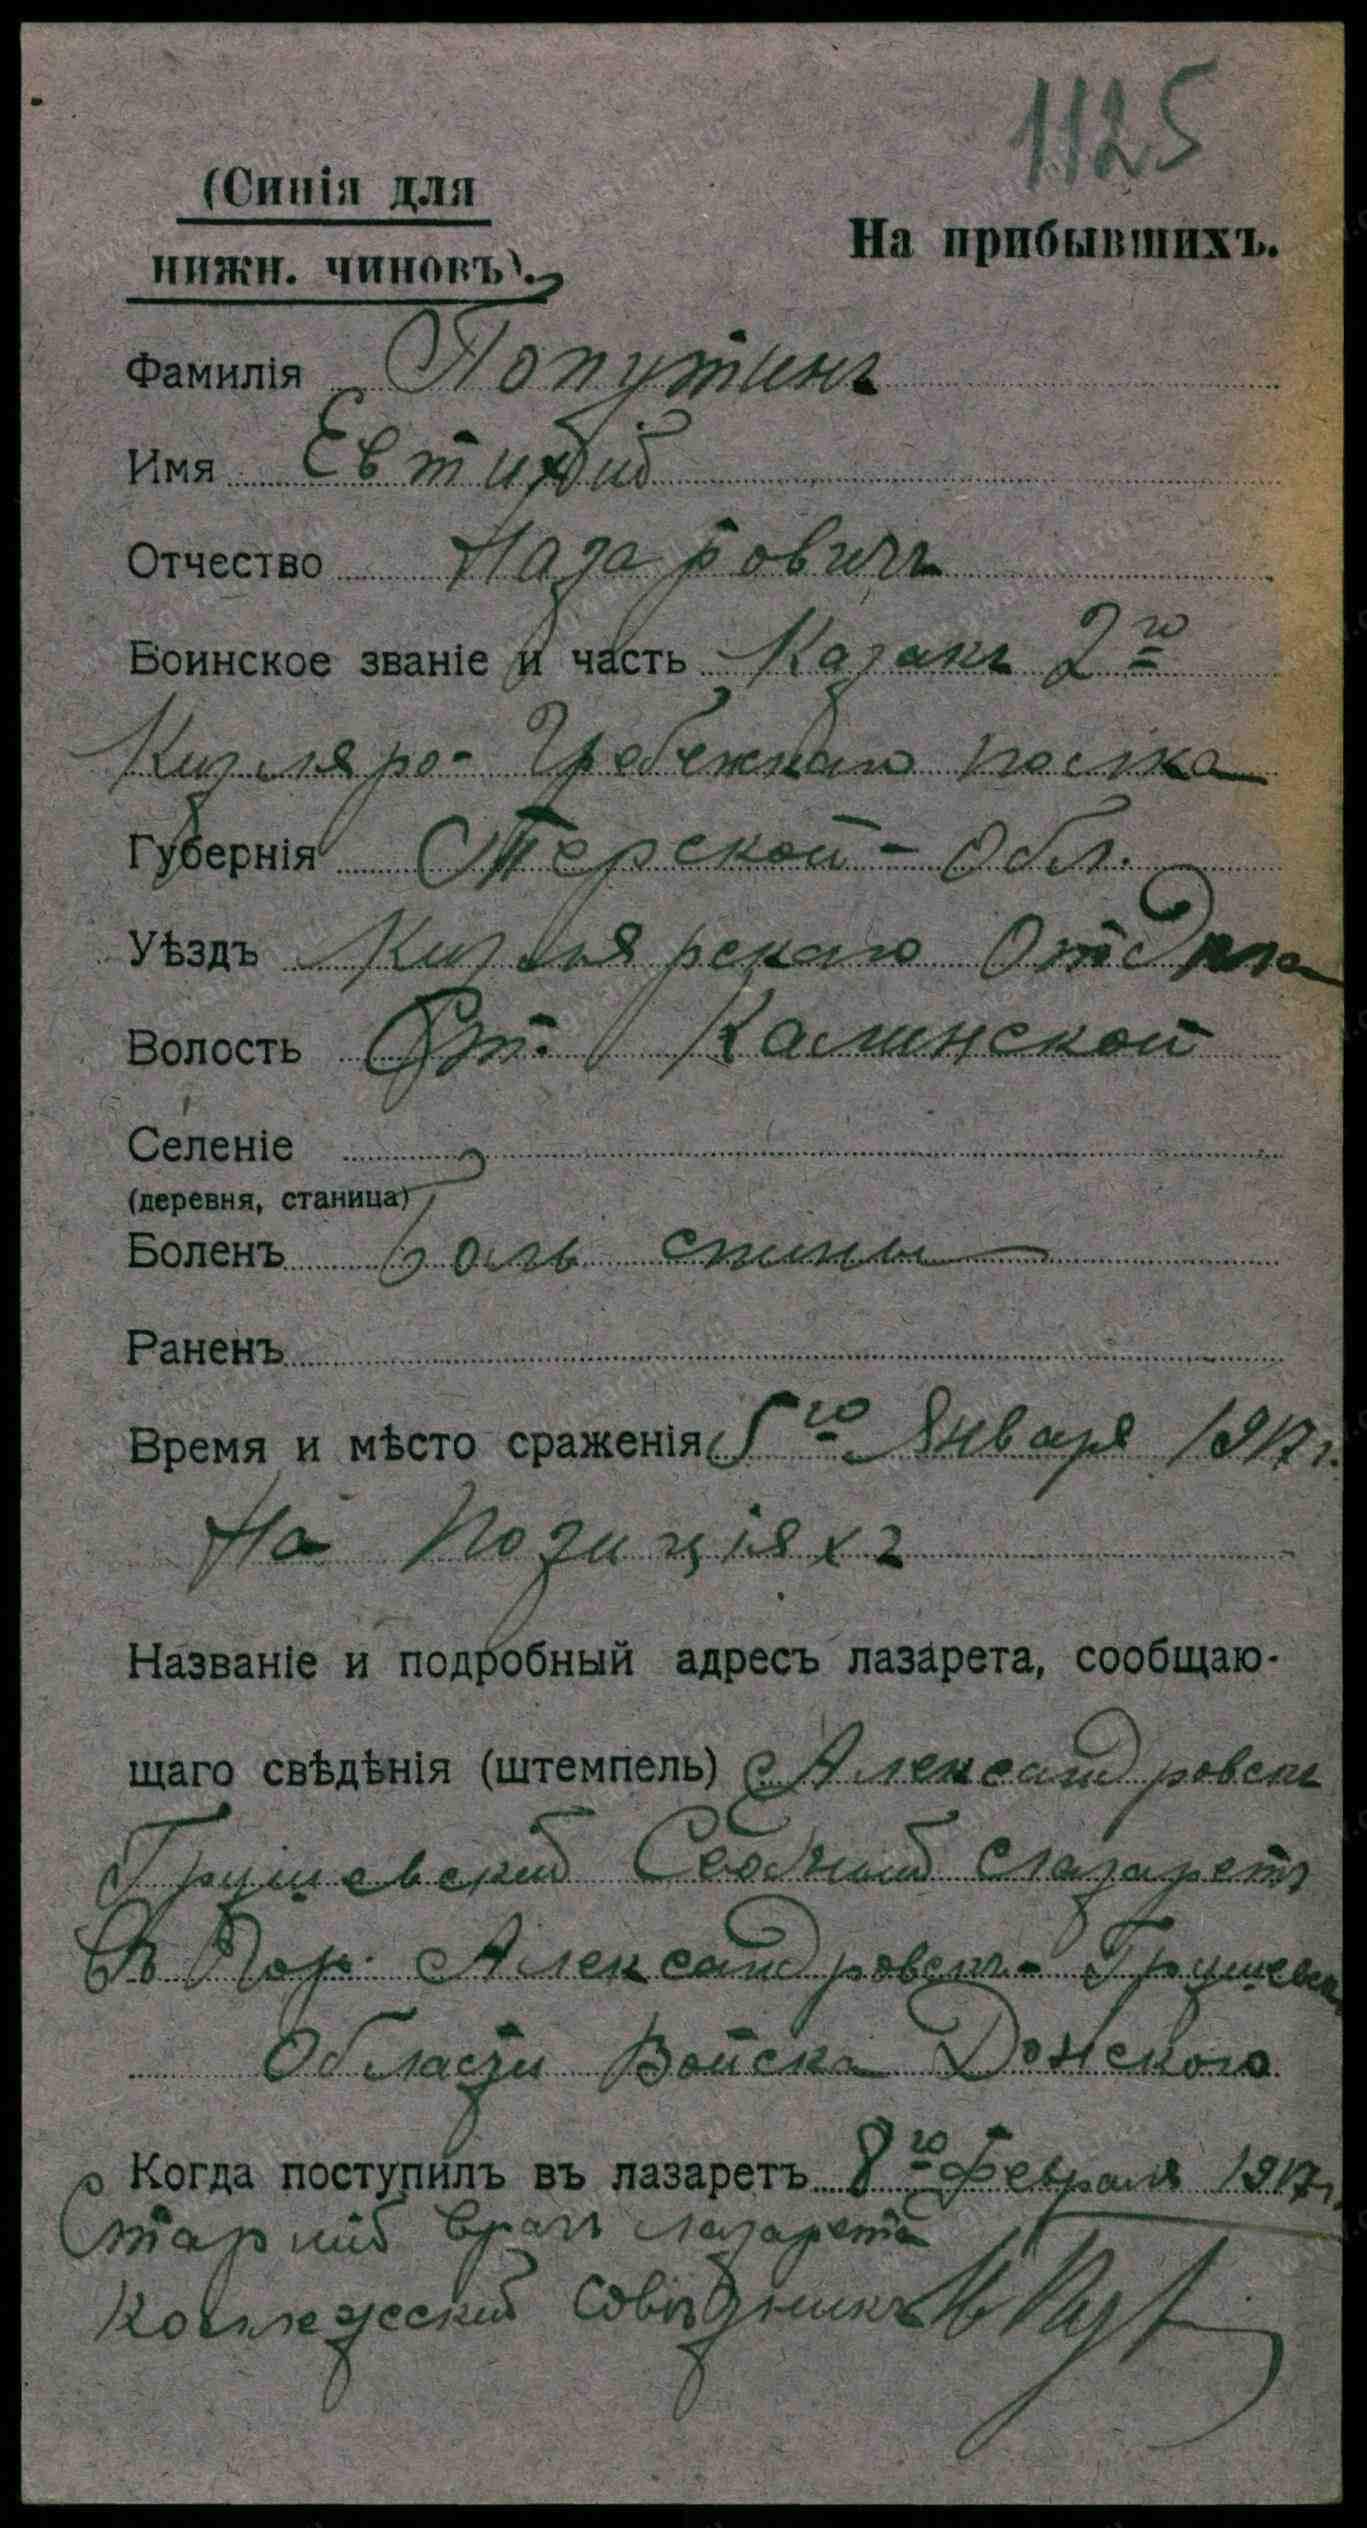 1125
(Синія для
нижн. чиновъ).
На прибывшихъ.
Фамилія Попутинъ
Имя Евтихій
Отчество Назаровичъ
Воинское званіе и часть Казакъ 2го
Кизляро-Гребенскаго полка
Губернія Терской-Обл.
Уѣздъ Кизлярскаго Отдѣла
Волость Ст. Калинской
Селеніе
(деревня, станица)
Боленъ боль спины
Раненъ
Время и мѣсто сраженія 5го Января 1917 г.
На позиціяхъ
Названіе и подробный адресъ лазарета, сообщаю-
щаго свѣдѣнія (штемпель) Александровскъ
Грушевскій лазаретъ
Въ Гор. Александровскъ-Грушевск
Области Войска Донского
Когда поступилъ въ лазаретъ 8го Февраля 1917 г.
Старшій врачъ лазарета
Коллежскій Совѣтникъ